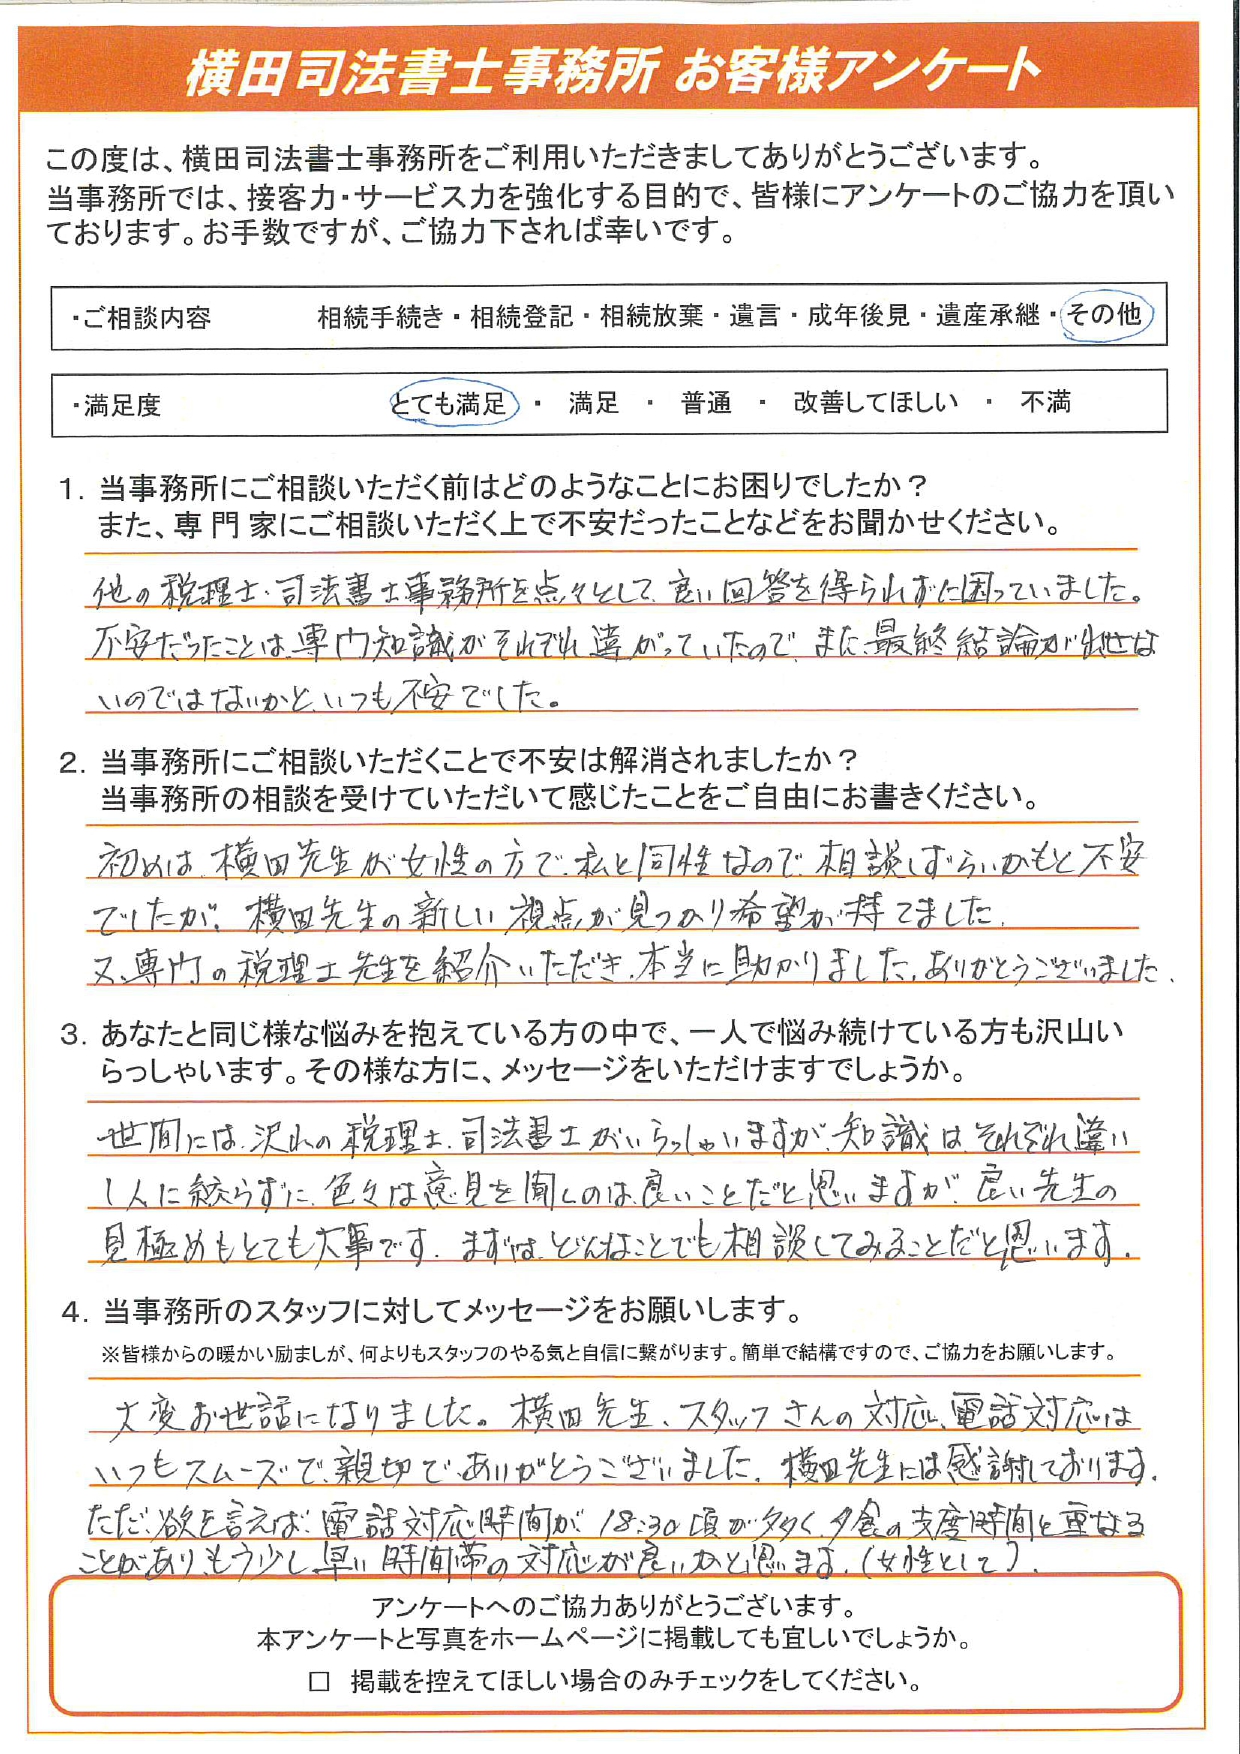 横田司法書士事務所 お客様アンケート
この度は、横田司法書士事務所をご利用いただきましてありがとうございます。
当事務所では、接客力・サービス力を強化する目的で、皆様にアンケートのご協力を頂い
ております。お手数ですが、ご協力下されば幸いです。
・ご相談内容 相続手続き・相続登記・相続放棄・遺言・成年後見・遺産承継・その他
・満足度 とても満足 ・ 満足 ・ 普通 ・ 改善してほしい ・ 不満
1. 当事務所にご相談いただく前はどのようなことにお困りでしたか？
また、専門家にご相談いただく上で不安だったことなどをお聞かせください。
他の税理士・司法書士事務所を点々として、良い回答を得られずに困っていました。
不安だったことは、専門知識がそれぞれ違がっていたので、また、最終結論が出せな
いのではないかと、いつも不安でした。
2. 当事務所にご相談いただくことで不安は解消されましたか？
当事務所の相談を受けていただいて感じたことをご自由にお書きください。
初めは、横田先生が女性の方で、私と同性なので、相談しずらいかもと不安
でしたが、横田先生の新しい視点が見つかり希望が持てました。
又、専門の税理士先生を紹介いただき、本当に助かりました。ありがとうございました。
3. あなたと同じ様な悩みを抱えている方の中で、一人で悩み続けている方も沢山い
らっしゃいます。その様な方に、メッセージをいただけますでしょうか。
世間には、沢山の税理士、司法書士がいらっしゃいますが、知識はそれぞれ違い
1人に絞らずに、色々は意見を聞くのは、良いことだと思いますが、良い先生の
見極めもとても大事です。まずは、どんなことでも相談してみることだと思います。
4. 当事務所のスタッフに対してメッセージをお願いします。
※皆様からの暖かい励ましが、何よりもスタッフのやる気と自信に繋がります。簡単で結構ですので、ご協力をお願いします。
大変お世話になりました。横田先生、スタッフさんの対応、電話対応は
いつもスムーズで、親切で、ありがとうございました。横田先生には感謝しております。
ただ、欲を言えば、電話対応時間が、18:30頃が多く、夕食の支度時間と重なる
ことがあり、もう少し早い時間帯の対応が良いかと思います。(女性として)。
アンケートへのご協力ありがとうございます。
本アンケートと写真をホームページに掲載しても宜しいでしょうか。
□ 掲載を控えてほしい場合のみチェックをしてください。